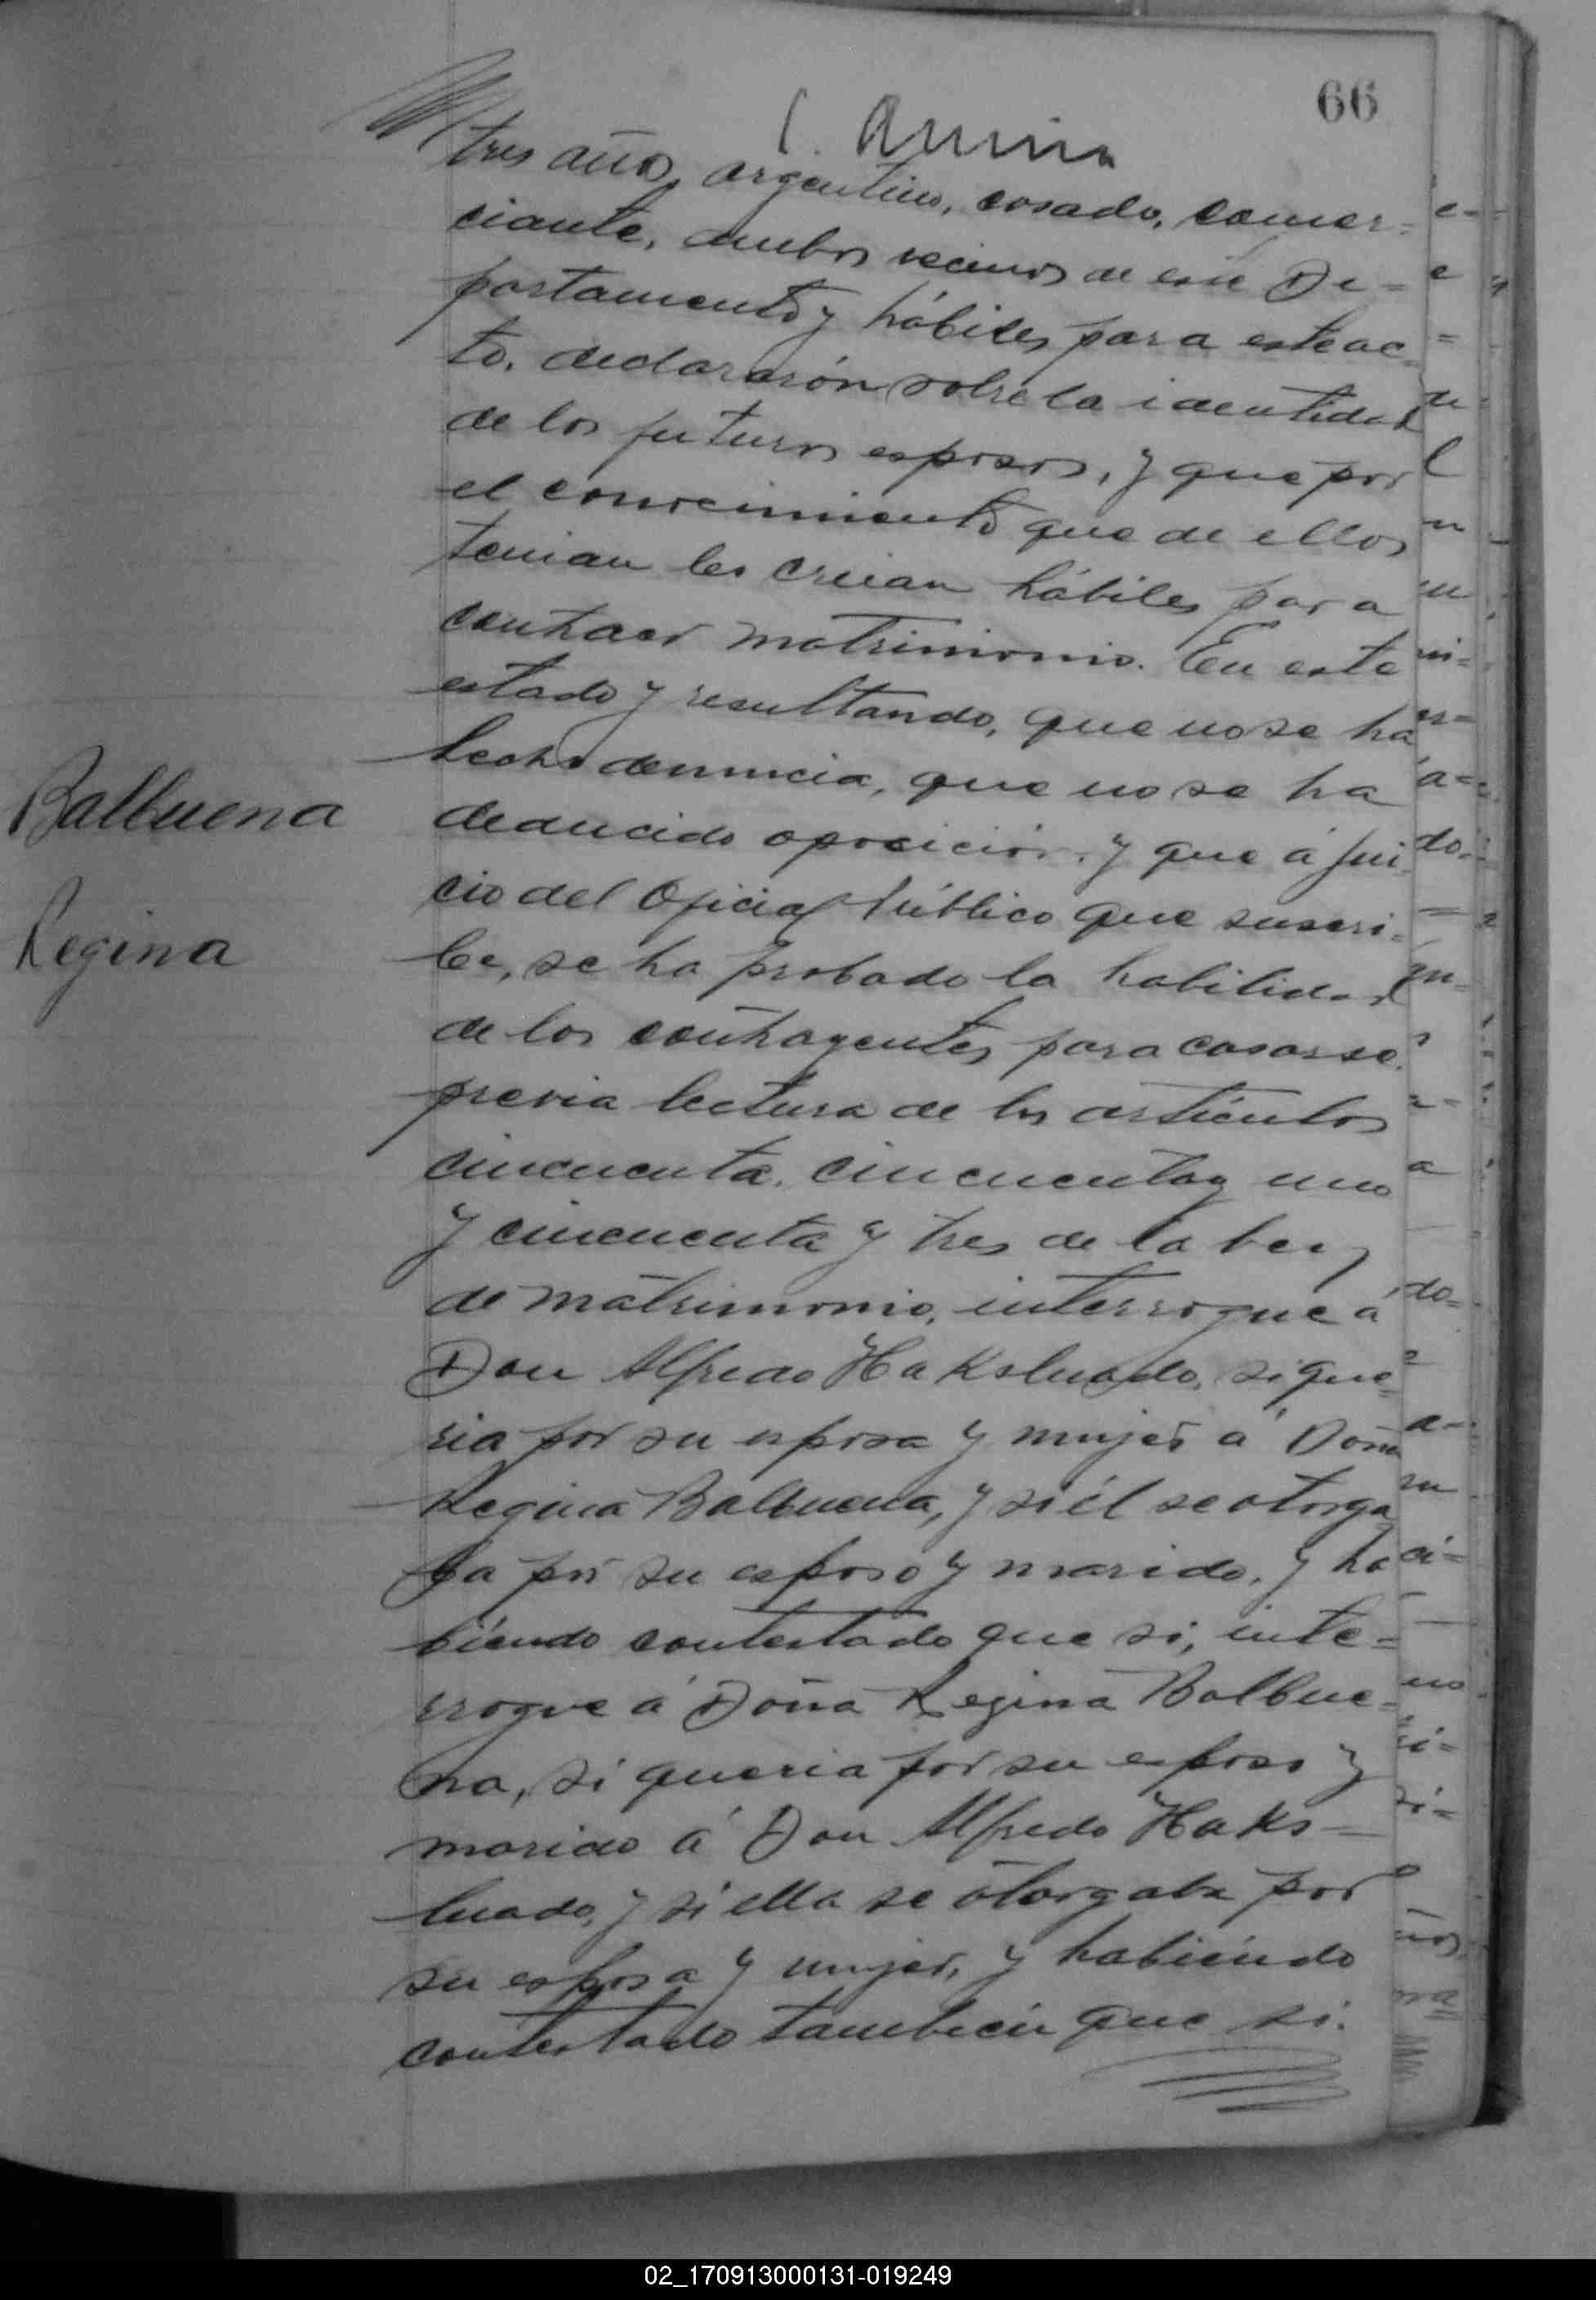 66
tres años, argentino, casado, comer=
ciante, ambos vecinos de este De=
partamento y hábiles para este ac
to, declararón sobre la identidad
de los futuros esposos, y que por
el conocimiento que de ellos
tenian les creian hábiles para
contraer matrimonio. En este
estado y resultando, que no se ha
hecho denuncia, que no se ha
Balbuena
deducido oposición, y que á jui
cio del Oficial Público que suscri=
Regina
be, se ha probado la habilidad
de los contrayentes para casarse,
previa lectura de los artículos
cincuenta, cincuenta y uno
y cincuenta y tres de la ley
de matrimonio, interrogué á
Don Alfredo Haksluado, si que=
ria por su esposa y mujer á Doña
Regina Balbuena, y si él se otorga
ba por su esposo y marido, y ha
biendo contestado que si, inte=
rrogue á Doña Regina Balbue=
na, si queria por su esposo y
marido á Don Alfredo Haks=
luado, y si ella se otorgaba por
su esposa y mujer, y habiendo
contestado también que si.
02_170913000131-019249